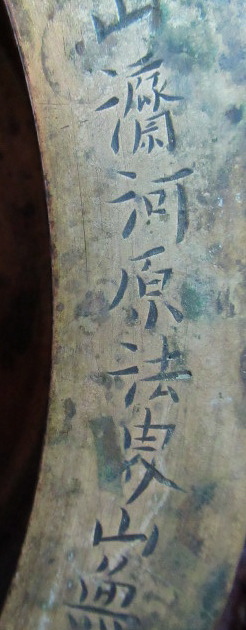 山濟河原法叟山